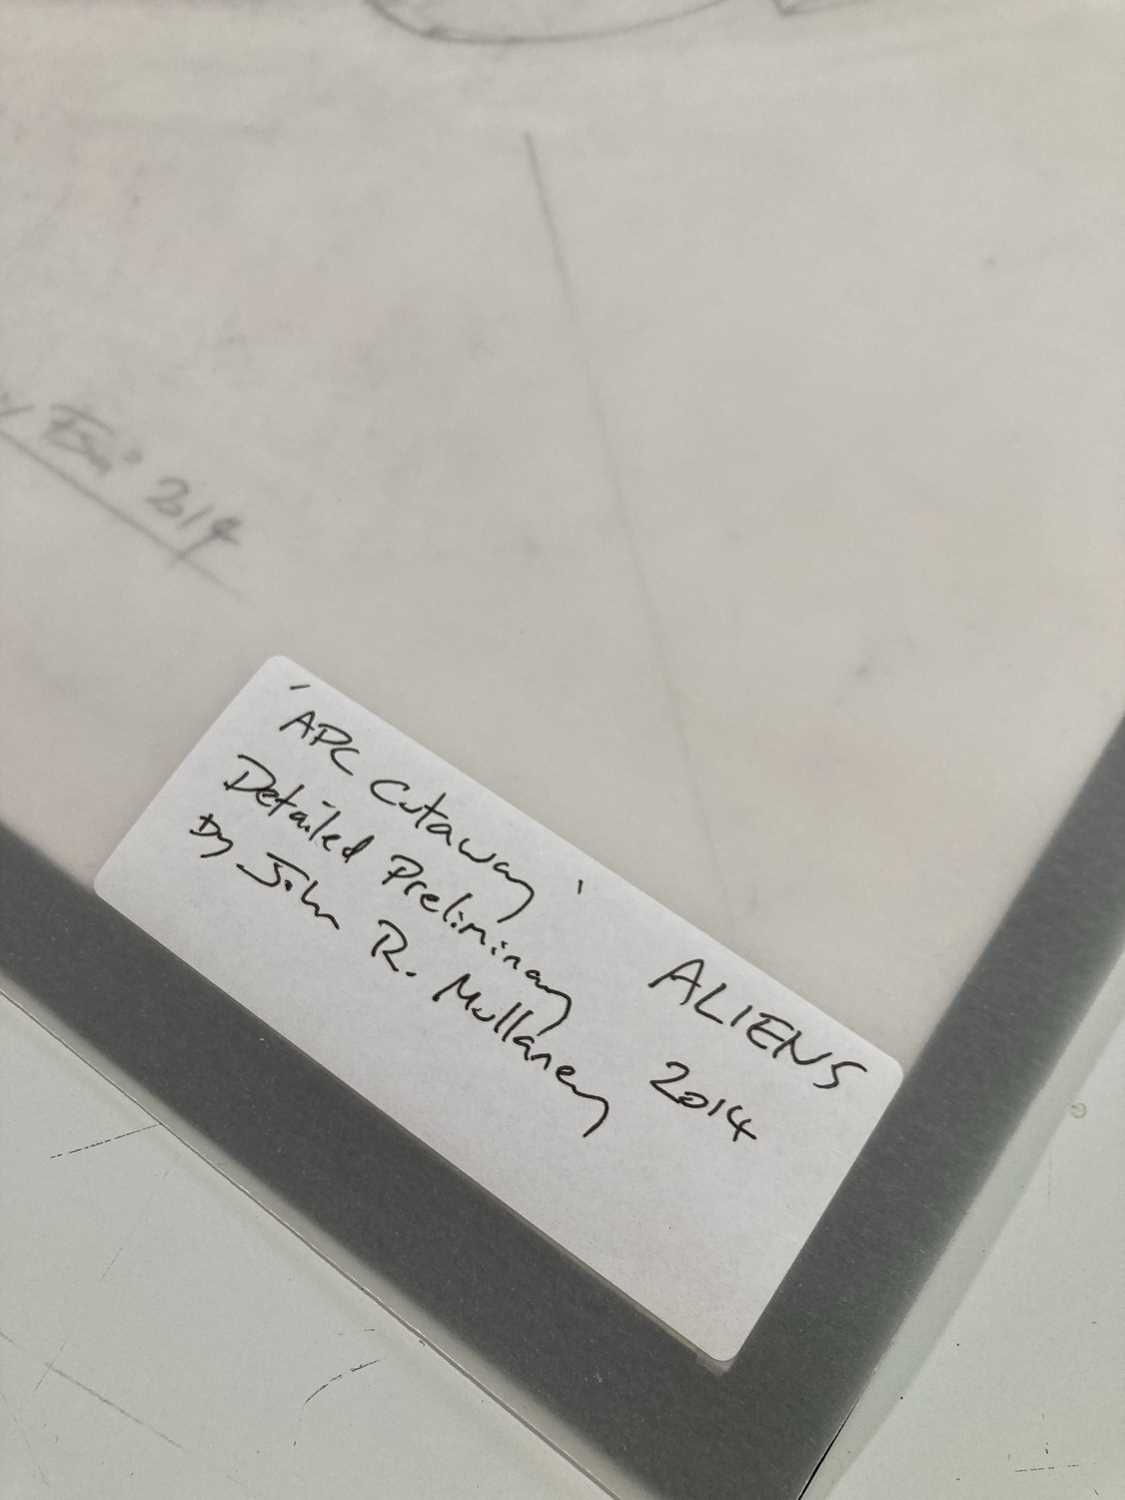 2014
'APC Cutaway' ALIENS
Detailed Preliminary 2014
by John R. Mullaney